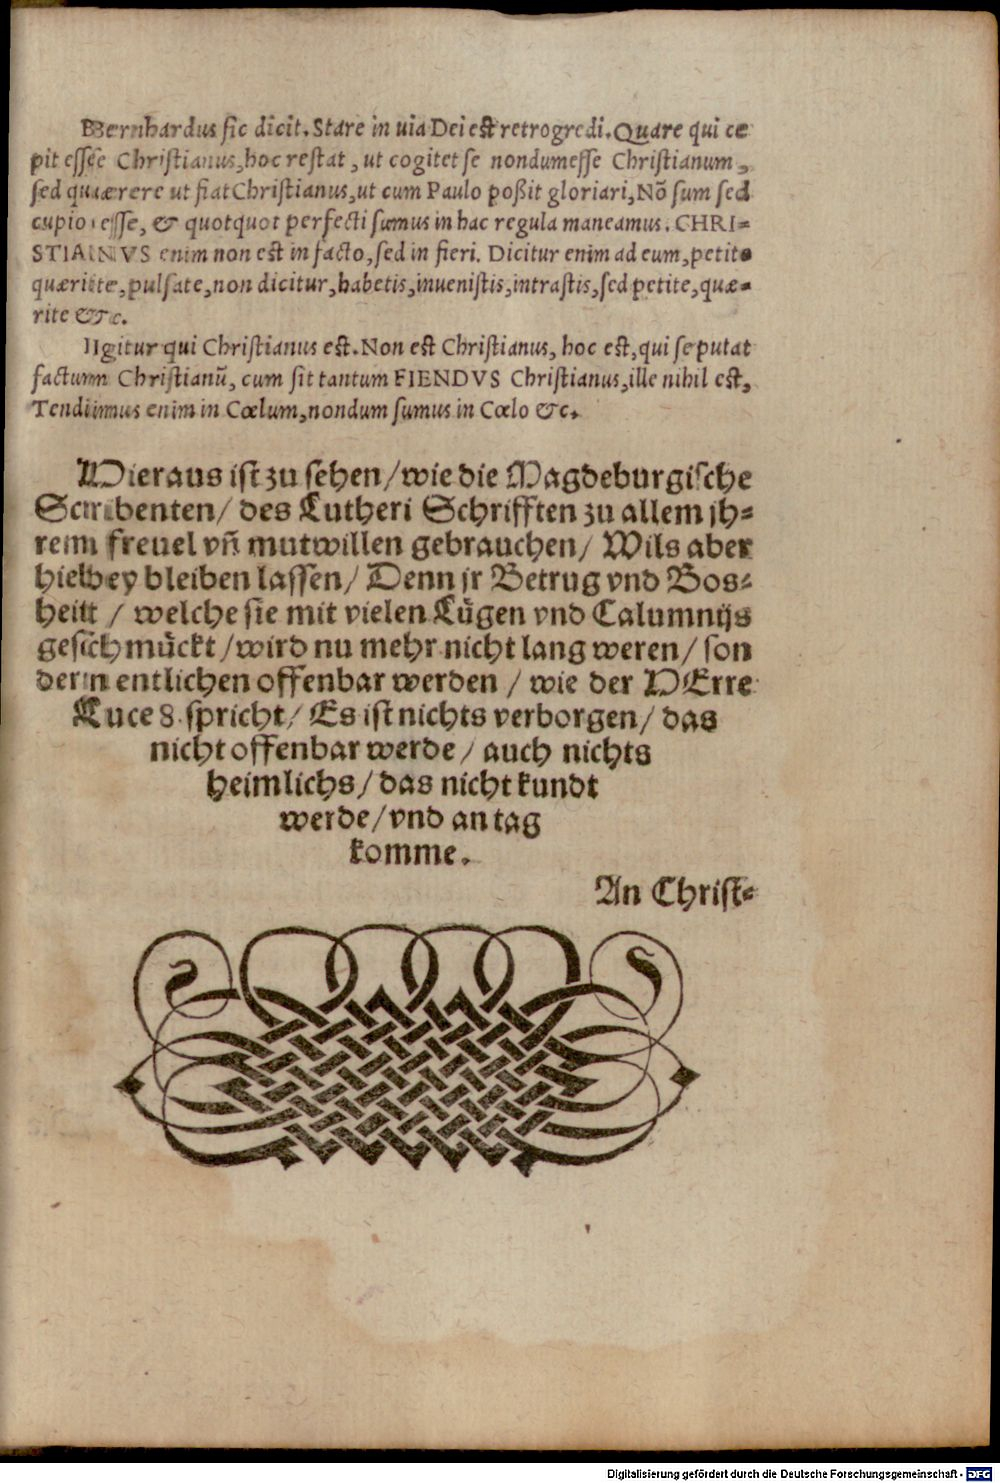 Bernhardus sic dicit. Stare in uia Dei est retrogredi. Quare qui ce
pit esse Christianus, hoc restat, ut cogitet se nondum esse Christianum,
sed quærere ut fiat Christianus, ut cum Paulo poßit gloriari, Nõ sum sed
cupio esse, & quotquot perfecti sumus in hac regula maneamus. CHRI=
STIANVS enim non est in facto, sed in fieri. Dicitur enim ad eum, petite
quærite, pulsate, non dicitur, habetis, inuenistis, intrastis, sed petite, quæ=
rite &c.
Igitur qui Christianus est. Non est Christianus, hoc est, qui se putat
factum Christianũ, cum sit tantum FIENDVS Christianus, ille nihil est,
Tendimus enim in Cœlum, nondum sumus in Cœlo &c.
Hieraus ist zu sehen / wie die Magdeburgische
Scribenten / des Lutheri Schrifften zu allem jh=
rem freuel vñ mutwillen gebrauchen / Wils aber
hiebey bleiben lassen / Denn jr Betrug vnd Bos=
heit / welche sie mit vielen Lügen vnd Calumnijs
geschmückt / wird nu mehr nicht lang weren / son
dern entlichen offenbar werden / wie der HErre
Luce 8. spricht / Es ist nichts verborgen / das
nicht offenbar werde / auch nichts
heimlichs / das nicht kundt
werde / vnd an tag
komme.
An Christ=
Digitalisierung gefördert durch die Deutsche Forschungsgemeinschaft - DFG